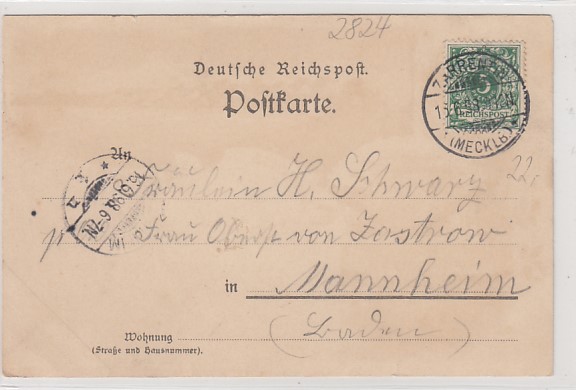 2824
Deutsche Reichspost.
Postkarte.
5
REICHSPOST
(MECKLB)
An
Fräulein H. Schwarz
22.
p. Frau Oberst von Zastrow
in Mannheim
(Baden)
Wohnung
(Straße und Hausnummer).